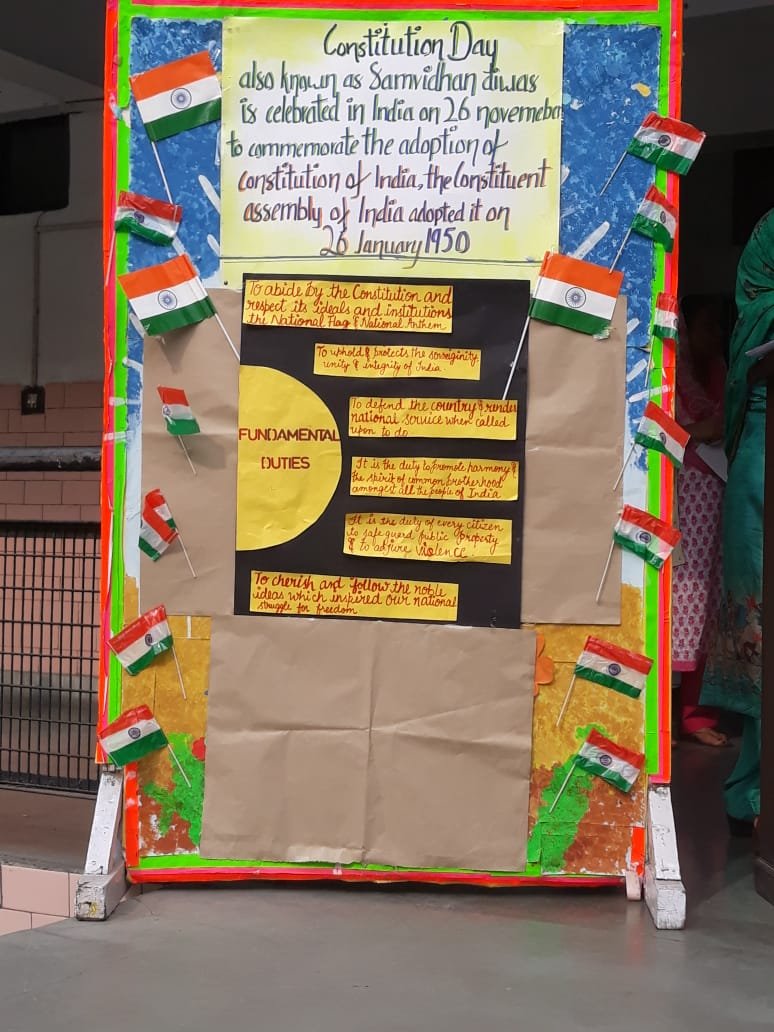 Constitution Day
also known as Samvidhan diwas
is celebrated in India on 26 novemeber
to commemorate the adoption of
constitution of India, the Constituent
assembly of India adopted it on
26 January 1950
To abide by the Constitution and
respect its ideals and institutions
the National Flag & National Anthem
To uphold & protects the sovreginity,
unity & integrity of India.
FUNDAMENTAL
DUTIES
To defend the country & render
national service when called
upon to do
It is the duty to promote harmony &
the spirit of common brotherhood
amongest all the people of India
It is the duty of every citizen
to safeguard public property
& to adjure violence!
To cherish and follow the noble
ideas which inspired our national
struggle for freedom